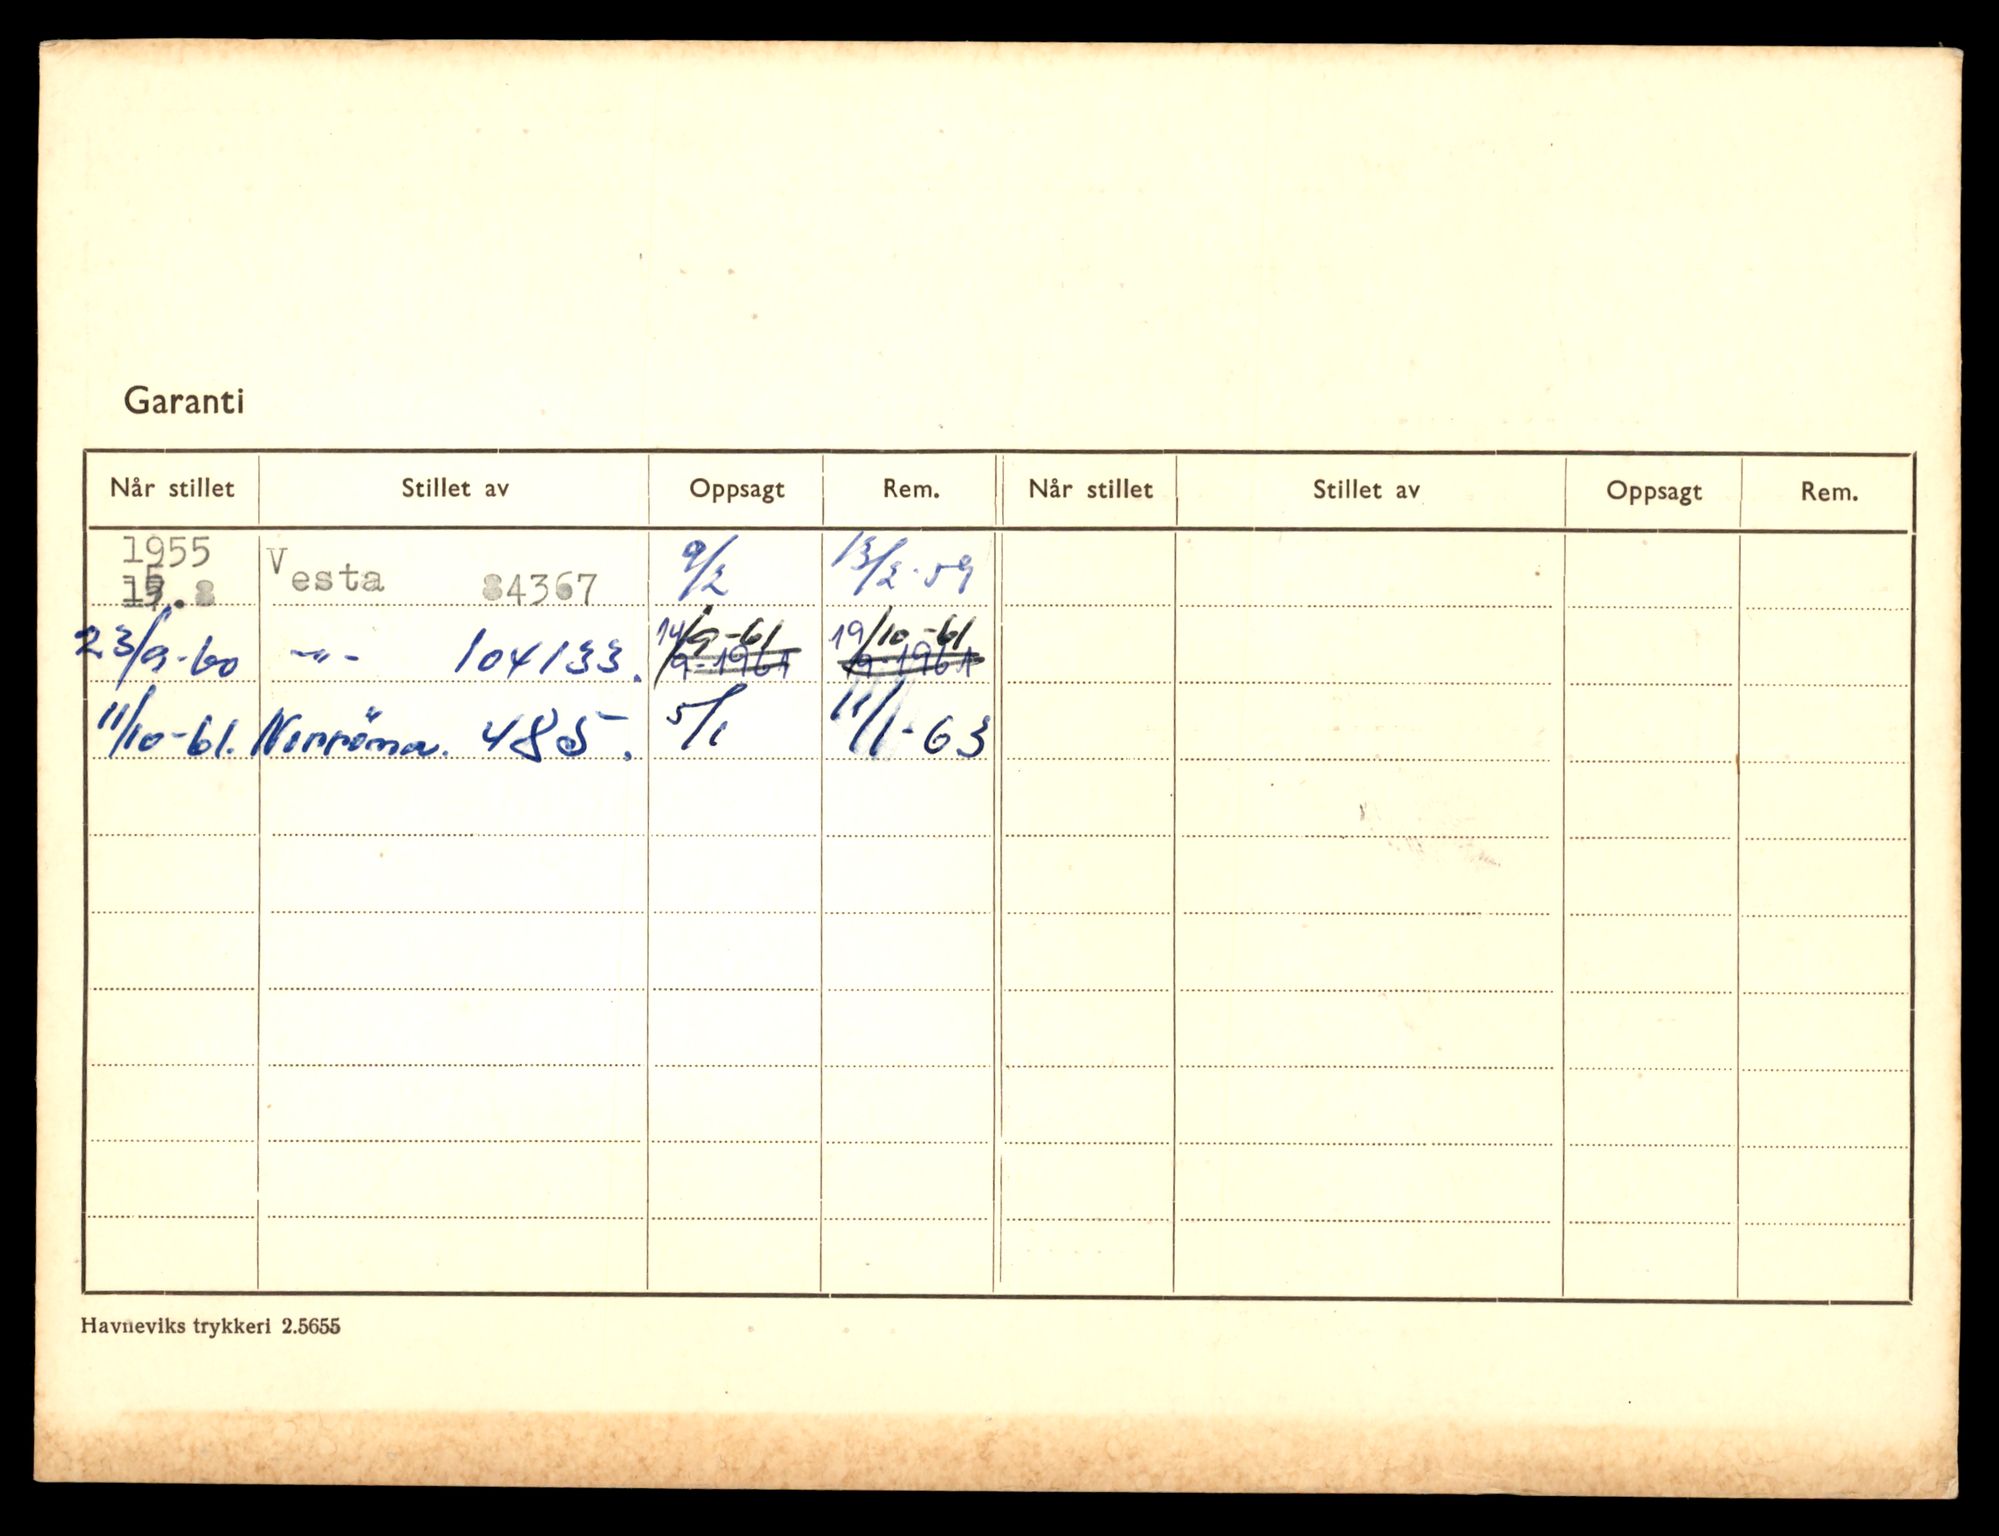 Garanti
Når stillet Stillet av Oppsagt Rem. Når stillet Stillet av Oppsagt Rem.
1955
.8 Vesta 84367 9/2 13/2-59
23/9-60 -"- 104133. 14/9-61 19/10-61
9-1961 9-1961
11/10-61. Norröna. 485. 5/1 11/1-63
Havneviks trykkeri 2.5655